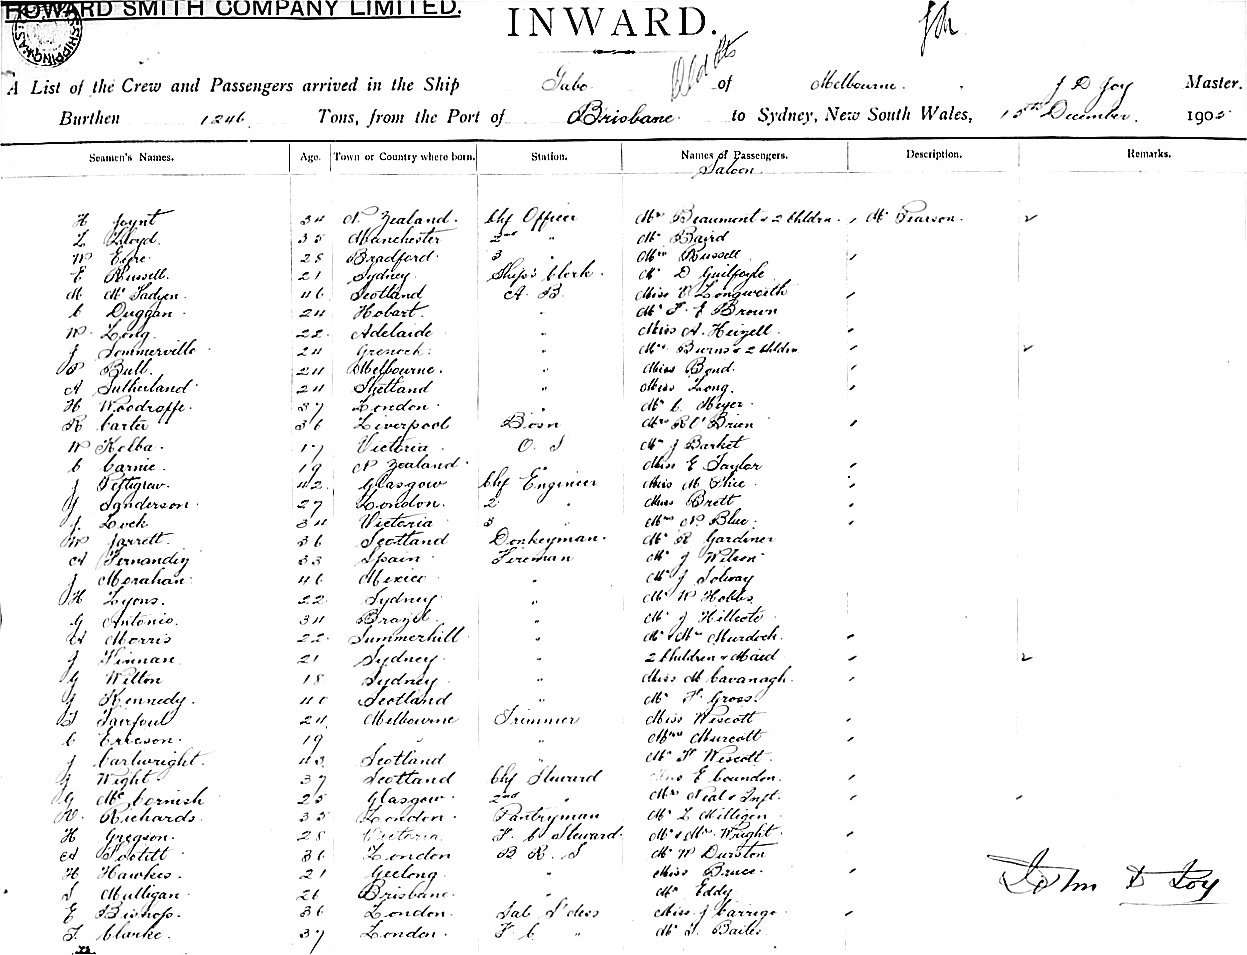 HOWARD SMITH COMPANY LIMITED.
INWARD.
A List of the Crew and Passengers arrived in the Ship Gabo of Melbourne. J D Joy Master.
Burthen 1246 Tons, from the Port of Brisbane to Sydney, New South Wales, 15th December. 1905
Seamen's Names. Age. Town or Country where born. Station. Names of Passengers. Description. Remarks.
Saloon
H Joynt 34 N. Zealand. Chf Officer Mrs Beaumont & 2 Children. Mr Pearson.
L Lloyd. 35 Manchester 2nd " Mr Baird
W Eyre 28 Bradford. 3 " Mrs Russell
E Russell. 21 Sydney. Ship's Clerk. Mr D Guilfoyle
M McFadyen 46 Scotland A. B. Miss E Longworth
C Duggan 24 Hobart. " Mr F J Brown
W. Long. 22 Adelaide " Miss A.
J Sommerville 24 Grenock. " Mrs Burns & 2 Children
Bull. 24 Melbourne. " Miss Bond.
A Sutherland 24 Shetland " Miss Long.
H Woodroffe 37 London " Mr C Meyer
R Carter 36 Liverpool Bosn Mrs R O'Brien
W Kolba 17 Victoria O. S Mr J Barket
C Carnie 19 N Zealand " Miss E Taylor
J Pettigrew 42 Glasgow Chf Engineer Miss M
J Sanderson 27 London. 2 " Miss Brett
J. Lock 34 Victoria 3 " Mrs N. Blue.
W Jarrett. 36 Scotland Donkeyman. Mr R Gardiner
A Fernandiz 33 Spain Fireman Mr J Wilson
J Morahan 46 Mexico " Mr J Solway
H Lyons. 22 Sydney " Mr W Hobbs
G Antonio. 34 Brazil. " Mr J Hillcoto
Morris 22 Summerhill " Mr & Mrs Murdoch.
J Finnan 21 Sydney " 2 Children & Maid
G Wilton 18 Sydney " Miss M Cavanagh.
J Kennedy. 40 Scotland " Mr F. Gross.
Fairfoul 24 Melbourne Trimmer Miss Wescott
C Ericson. 19 " " Mrs Murcott
J Cartwright. 43 Scotland " Mr F Wescott.
J Wight 37 Scotland Chf Steward E Coundon.
G McCornish 25 Glasgow 2nd " Mrs Neal & Inft.
Richards. 35 London Pantryman Mr L Milligen
H Gregson. 28 Victoria F. C Steward. Mr & Mrs Wright
A 36 London B R. S Mr W Durston
H Hawkes. 21 Geelong " Miss Bruce.
S Mulligan 26 Brisbane " Mr Eddy
E Bishop. 36 London. Sal S'dess Miss J Carrige
F. Clarke. 37 London. F C " Mr S. Bailes
John D Joy